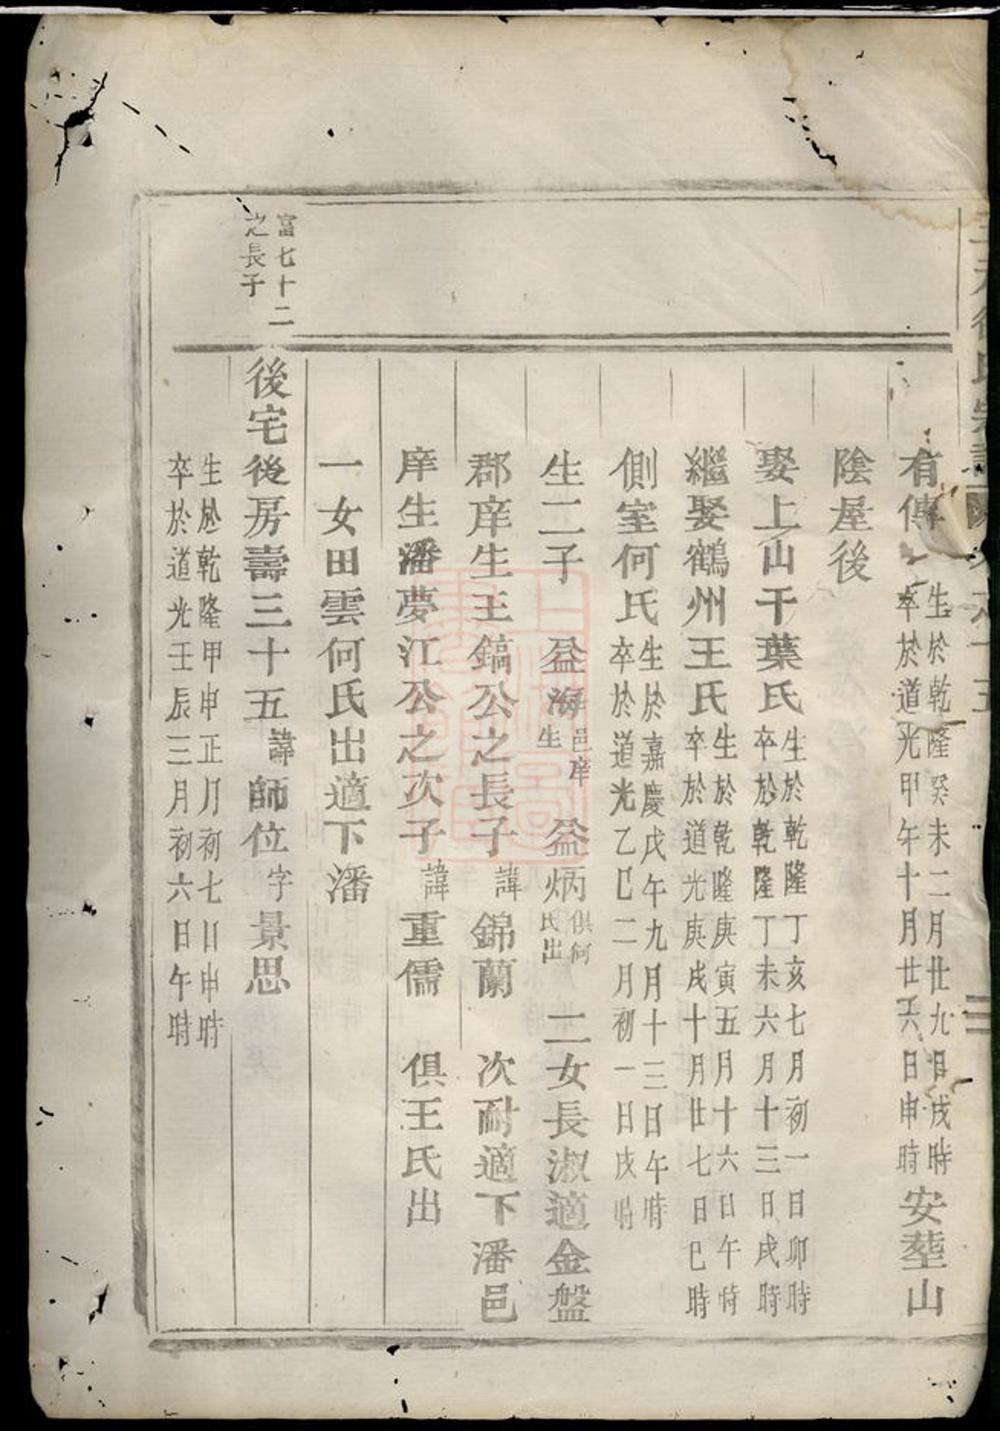 有傳生於乾隆癸未二月廿九日戌時卒於道光甲午十月廿六日申時安塟山
陰屋後
娶上山干葉氏生於乾隆丁亥七月初一日卯時卒於乾隆丁未六月十三日戌時
繼娶鶴州王氏生於乾隆庚寅五月十六日午時卒於道光庚戌十月廿七日巳時
側室何氏生於嘉慶戊午九月十三日午時卒於道光乙巳二月初一日戌時
生二子 益海邑庠生 益炳俱何氏出 二女長淑適金盤
郡庠生王鎬公之長子諱錦蘭 次耐適下潘邑
庠生潘夢江公之次子諱重儒 俱王氏出
一女田雲何氏出適下潘
富七十二之長子
後宅後房壽三十五諱師位字景思
生於乾隆甲申正月初七日申時卒於道光壬辰三月初六日午時